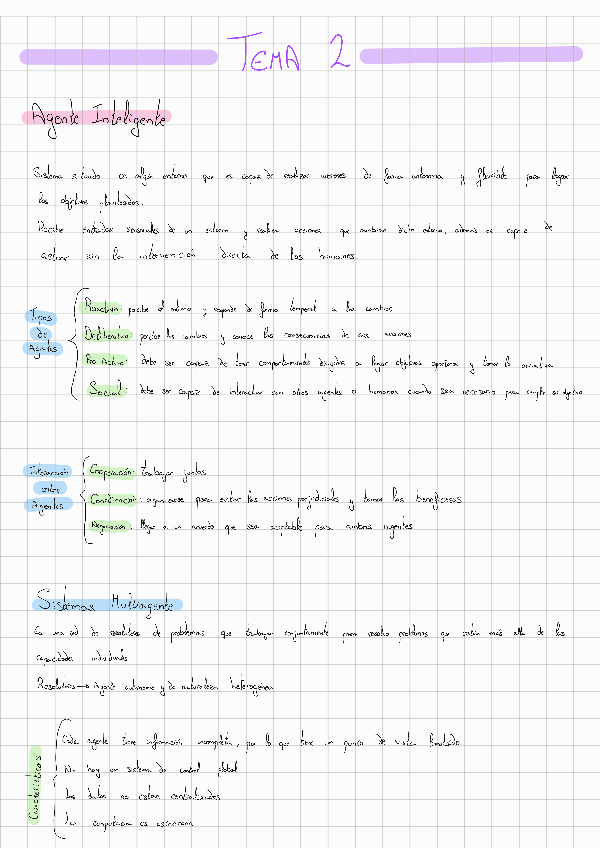 TEMA 2
Agente Inteligente
Sistema situado en algún entorno que es capaz de realizar acciones de forma autónoma y flexible para lograr
los objetivos planteados.
Recibe entradas sensoriales de un entorno y realiza acciones que cambian dicho entorno, además es capaz de
actuar sin la intervención directa de los humanos.
Tipos de Agentes
Reactivo: percibe el entorno y responde de forma temporal a los cambios
Deliberativo: percibe los cambios y conoce las consecuencias de sus acciones
Pro Activo: debe ser capaz de tener comportamiento dirigido a lograr objetivos oportunos y tomar la iniciativa
Social: debe ser capaz de interactuar con otros agentes o humanos cuando sea necesario para cumplir su objetivo
Interacción entre Agentes
Cooperación: trabajar juntos
Coordinación: organizarse para evitar las acciones perjudiciales y tomar las beneficiosas
Negociación: llegar a un acuerdo que sea aceptable para ambos agentes
Sistemas Multiagente
Es una red de resolutores de problemas que trabajan conjuntamente para resolver problemas que están más allá de las
capacidades individuales
Resolutores → Agente autónomo y de naturaleza heterogénea
Características
Cada agente tiene información incompleta, por lo que tiene un punto de vista limitado
No hay un sistema de control global
Los datos no están centralizados
La computación es asíncrona